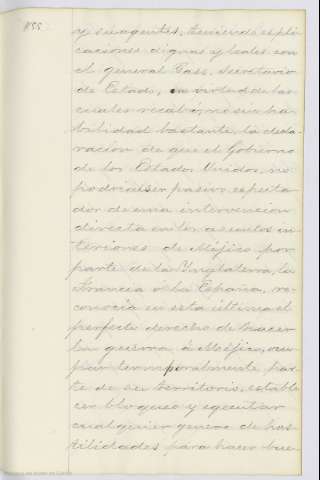 155
y sus agentes, teniendo espli
caciones dignas y leales con
el general Cass, Secretario
de Estado, en virtud de las
cuales recabó, no sin ha
bilidad bastante, la decla
racion de que el Gobierno
de los Estados Unidos, no
podria ser pasivo especta
dor de una intervencion
directa en los asuntos in
teriores de Méjico por
parte de la Ynglaterra, la
Francia ó la España, re-
conocia en esta última el
perfecto derecho de hacer
la guerra á Méjico, ocu
par temporalmente par
te de su territorio, estable
cer bloqueo y egecutar
cualquier genero de hos
tilidades para hacer bue-